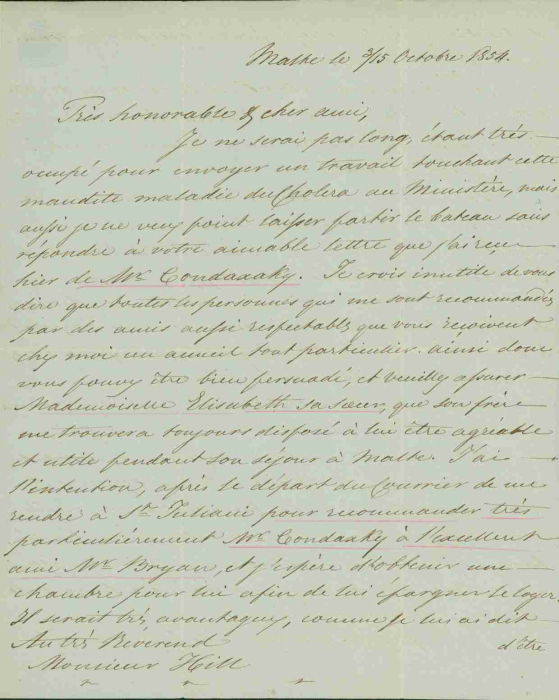 Malte le 3/15 Octobre 1854.
Très honorable & cher ami,
Je ne serai pas long, étant très
occupé pour envoyer un travail touchant cette
maudite maladie du Cholera au Ministère, mais
aussi je ne veux point laisser partir le bateau sans
répondre à votre aimable lettre que j'ai reçu
hier de Mr. Condaxaky. Je crois inutile de vous
dire que toutes les personnes qui me sont recommandés
par des amis aussi respectables que vous reçoivent
chez moi un acueil tout particulier. ainsi donc
vous pouvez être bien persuadé, et veuillez assurer
Mademoiselle Elisabeth sa sœur, que son frère
me trouvera toujours disposé à lui être agréable
et utile pendant son séjour à Malte. J'ai
l'intention, après le départ du Courrier de me
rendre à St. Juliani pour recommander très
particulièrement Mr. Condaxaky à l'excellent
ami Mr. Bryan, et j'espère d'obtenir une
chambre pour lui afin de lui épargner le loyer.
Il serait très avantageux, comme je lui ai dit
Au très Reverend
d'être
Monsieur Hill